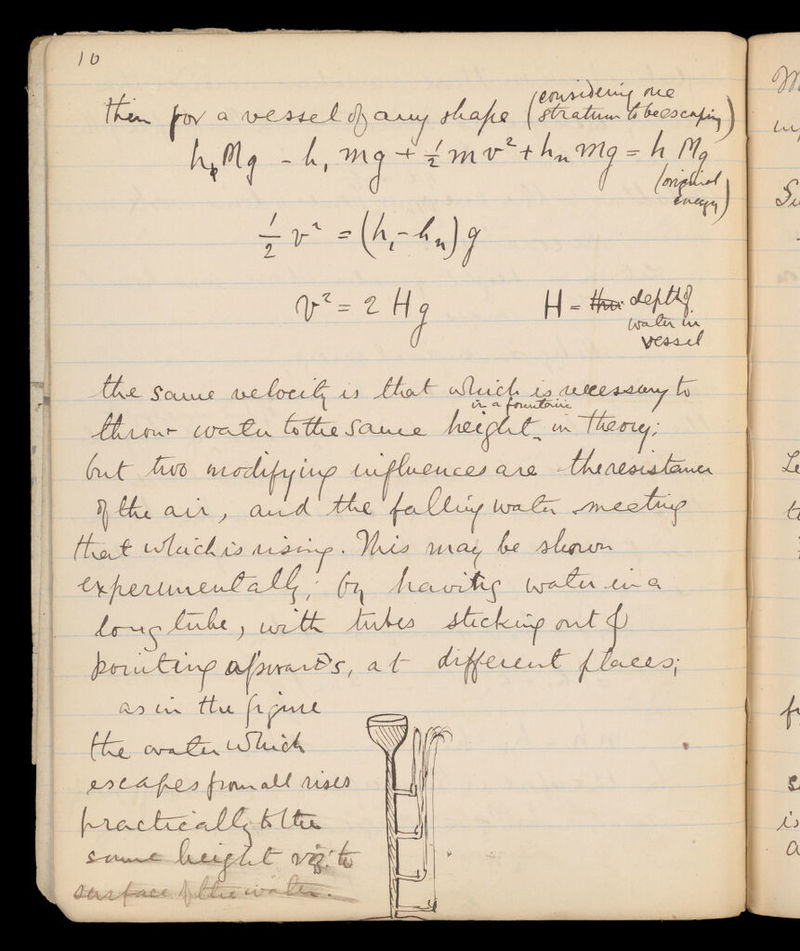 10
then for a vessel of any shape (considering one
stratum to be escaping)
h, Mg - h, mg + 1/2 m v² + hₙ mg = h Mg
(original
energy)
1/2 v² = (h, - hₙ) g
v² = 2 Hg H = the depth of
water in
vessel
the same velocity is that which is necessary to
in a fountain
throw water to the same height, in theory;
but two modifying influences are the resistance
of the air, and the falling water meeting
that which is rising. This may be shown
experimentally; by having water in a
long tube, with tubes sticking out &
pointing upwards, at different places;
as in the figure
the water which
escapes from all rises
practically to the
same height viz: to
surface of the water.
M
Su
Le
to
fr
s
is
a